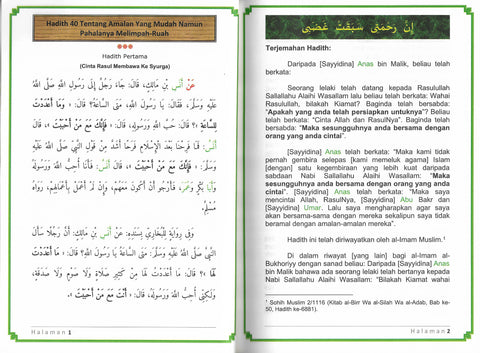 Hadith 40 Tentang Amalan Yang Mudah Namun
Pahalanya Melimpah-Ruah
Hadith Pertama
(Cinta Rasul Membawa Ke Syurga)
عَنْ أَنَسِ بْنِ مَالِكٍ، قَالَ: جَاءَ رَجُلٌ إِلَى رَسُولِ اللهِ صَلَّى اللهُ
عَلَيْهِ وَسَلَّمَ، فَقَالَ: يَا رَسُولَ اللهِ، مَتَى السَّاعَةُ؟ قَالَ: « وَمَا أَعْدَدْتَ
لِلسَّاعَةِ »؟ قَالَ: حُبَّ اللهِ وَرَسُولِهِ، قَالَ: « فَإِنَّكَ مَعَ مَنْ أَحْبَبْتَ ».
قَالَ أَنَسٌ: فَمَا فَرِحْنَا بَعْدَ الْإِسْلَامِ فَرَحًا أَشَدَّ مِنْ قَوْلِ النَّبِي صَلَّى اللهُ
عَلَيْهِ وَسَلَّمَ: « فَإِنَّكَ مَعَ مَنْ أَحْبَبْتَ ». قَالَ أَنَسٌ: فَأَنَا أُحِبُّ اللهَ وَرَسُولَهُ
وَأَبَا بَكْرٍ وَعُمَرَ، فَأَرْجُو أَنْ أَكُونَ مَعَهُمْ، وَإِنْ لَمْ أَعْمَلْ بِأَعْمَالِهِمْ. رَوَاهُ
مُسْلِمٌ.
وَفِي رِوَايَةٍ لِلْبُخَارِيِّ بِسَنَدِهِ: عَنْ أَنَسِ بْنِ مَالِكٍ: أَنَّ رَجُلًا سَأَلَ
النَّبِي صَلَّى اللهُ عَلَيْهِ وَسَلَّمَ: مَتَى السَّاعَةُ يَا رَسُولَ اللهِ؟ قَالَ: « مَا أَعْدَدْتَ
لَهَا »؟ قَالَ: مَا أَعْدَدْتُ لَهَا مِنْ كَثِيرِ صَلَاةٍ وَلَا صَوْمٍ وَلَا صَدَقَةٍ،
وَلَكِنِّي أُحِبُّ اللهَ وَرَسُولَهُ، قَالَ: « أَنْتَ مَعَ مَنْ أَحْبَبْتَ ».
Halaman 1
إِنَّ رَحْمَتِي سَبَقَتْ غَضَبِي
Terjemahan Hadith:
Daripada [Sayyidina] Anas bin Malik, beliau telah
berkata:
Seorang lelaki telah datang kepada Rasulullah
Sallallahu Alaihi Wasallam lalu beliau telah berkata: Wahai
Rasulullah, bilakah Kiamat? Baginda telah bersabda:
"Apakah yang anda telah persiapkan untuknya"? Beliau
telah berkata: "Cinta Allah dan RasulNya". Baginda telah
bersabda: "Maka sesungguhnya anda bersama dengan
orang yang anda cintai".
[Sayyidina] Anas telah berkata: "Maka kami tidak
pernah gembira selepas [kami memeluk agama] Islam
[dengan] satu kegembiraan yang lebih kuat daripada
sabdaan Nabi Sallallahu Alaihi Wasallam: "Maka
sesungguhnya anda bersama dengan orang yang anda
cintai". [Sayyidina] Anas telah berkata: "Maka saya
mencintai Allah, RasulNya, [Sayyidina] Abu Bakr dan
[Sayyidina] Umar. Lalu saya mengharapkan agar saya
akan bersama-sama dengan mereka sekalipun saya tidak
beramal dengan amalan-amalan mereka".
Hadith ini telah diriwayatkan oleh al-Imam Muslim.¹
Di dalam riwayat [yang lain] bagi al-Imam al-
Bukhoriyy dengan sanad beliau: Daripada [Sayyidina] Anas
bin Malik bahawa ada seorang lelaki telah bertanya kepada
Nabi Sallallahu Alaihi Wasallam: "Bilakah Kiamat wahai
¹ Sohih Muslim 2/1116 (Kitab al-Birr Wa al-Silah Wa al-Adab, Bab ke-
50, Hadith ke-6881).
Halaman 2